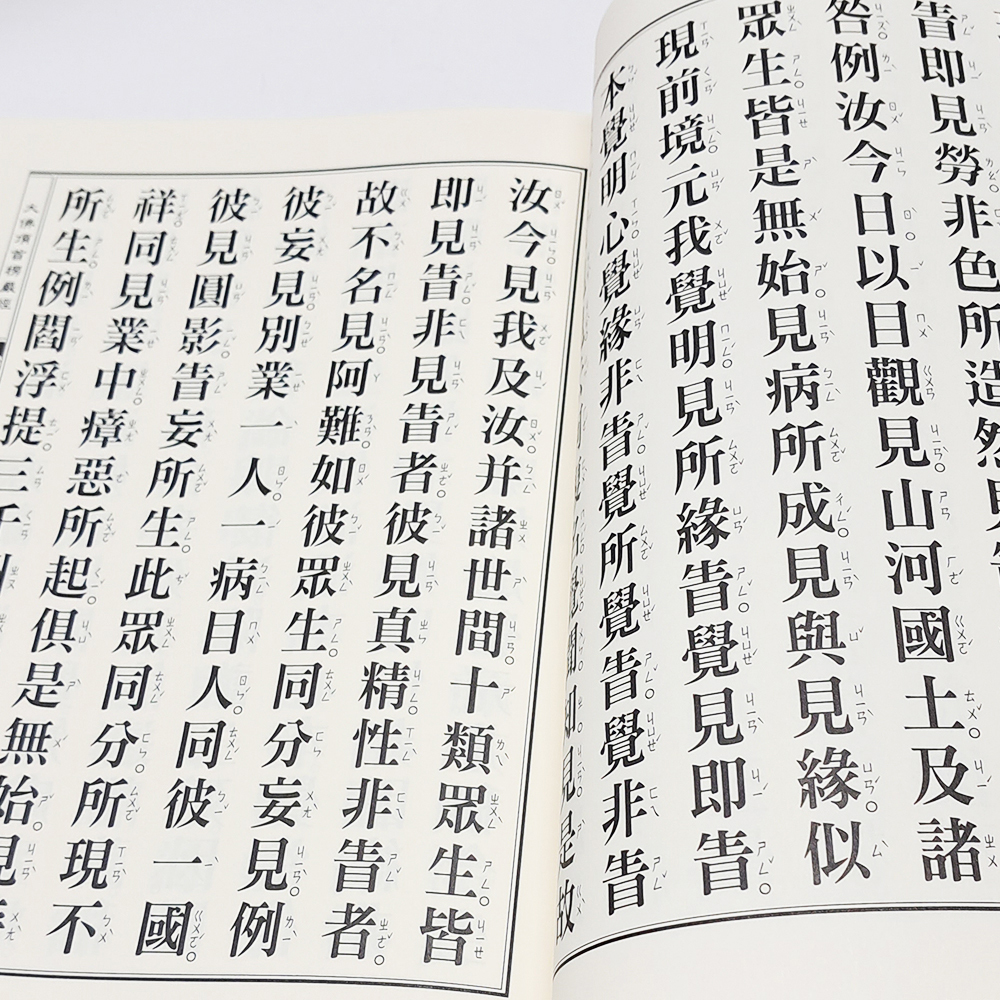 眚即見勞非色所造然
咎例汝今日以目觀見山河國土及諸
眾生皆是無始見病所成見與見緣似
現前境元我覺明見所緣眚覺見即眚
本覺明心覺緣非眚覺所覺眚覺非眚
覺聞知見是故
汝今見我及汝并諸世間十類眾生皆
即見眚非見眚者彼見真精性非眚者
故不名見阿難如彼眾生同分妄見例
彼妄見別業一人一病目人同彼一國
彼見圓影眚妄所生此眾同分所現不
祥同見業中瘴惡所起俱是無始見
所生例閻浮提三千
大佛頂首楞嚴經